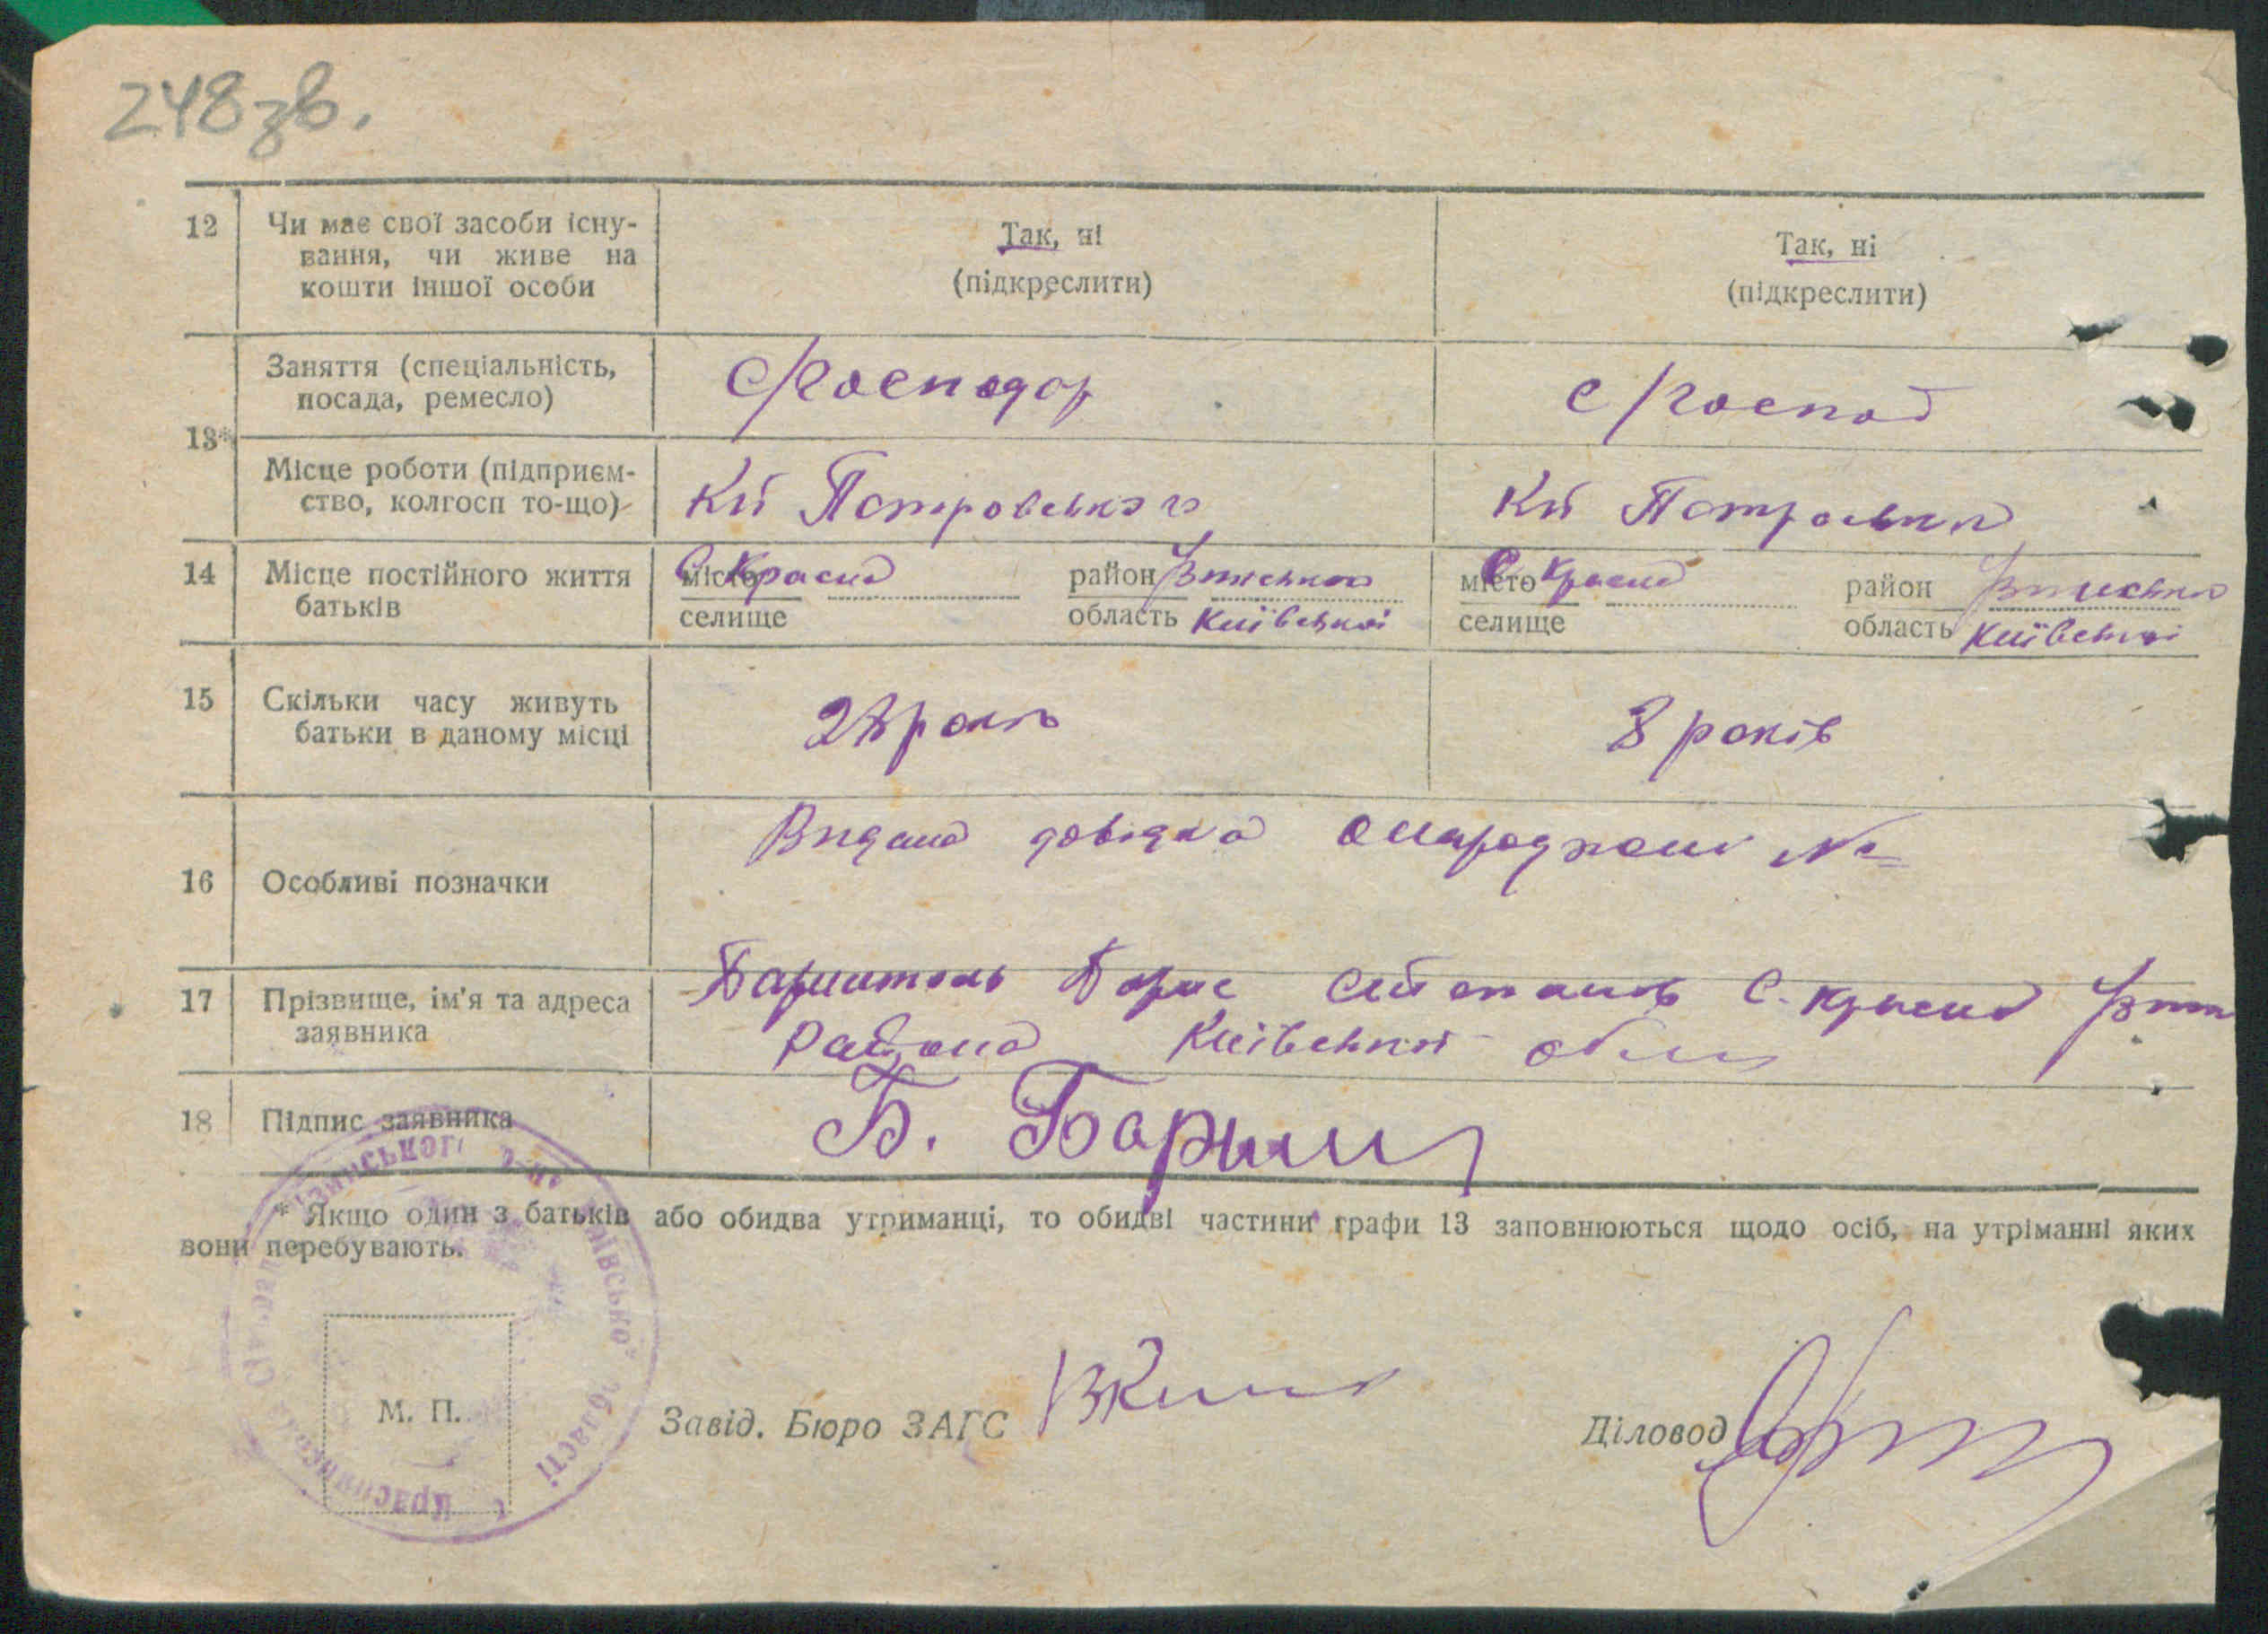 248зв.
12 Чи має свої засоби існу-
вання, чи живе на
кошти іншої особи
Так, ні
(підкреслити)
Так, ні
(підкреслити)
13*
Заняття (спеціальність,
посада, ремесло)
с/господар
с/господ
Місце роботи (підприєм-
ство, колгосп то-що)
Кп Петровського
Кп
14 Місце постійного життя
батьків
місто С Красна район
селище область Київської
місто С Красна район
селище область Київської
15 Скільки часу живуть
батьки в даному місці
28 років
8 років
16 Особливі позначки
Видана довідка о народжені №
17 Прізвище, ім'я та адреса
заявника
Борис С. Красна
Района Київської обл
18 Підпис заявника
Б.
* Якщо один з батьків або обидва утриманці, то обидві частини графи 13 заповнюються щодо осіб, на утріманні яких
вони перебувають.
М. П.
Завід. Бюро ЗАГС
Діловод